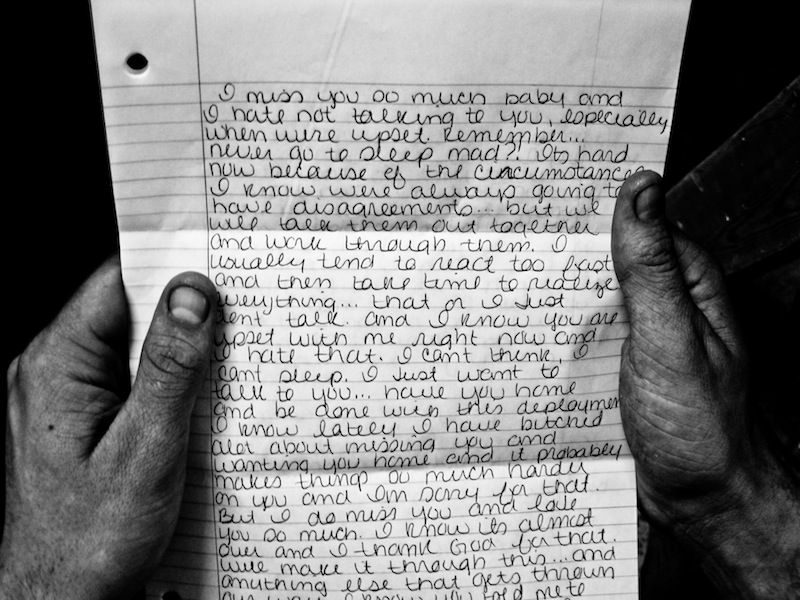 I miss you so much baby and
I hate not talking to you, especially
when were upset. Remember...
never go to sleep mad?! Its hard
now because of the circumstances
I know were always going to
have disagreements... but we
will talk them out together
and work through them. I
usually tend to react too fast
and then take time to realize
everything... that or I Just
dont talk. and I know you are
upset with me right now and
I hate that. I cant think, I
cant sleep. I Just want to
talk to you... have you home
and be done with this deployment
I know lately I have bitched
alot about missing you and
wanting you home and it probably
makes things so much harder
on you and Im sorry for that.
But I do miss you and love
you so much. I know its almost
over and I thank God for that.
we'll make it through this... and
anything else that gets thrown
our way. I know you told me to